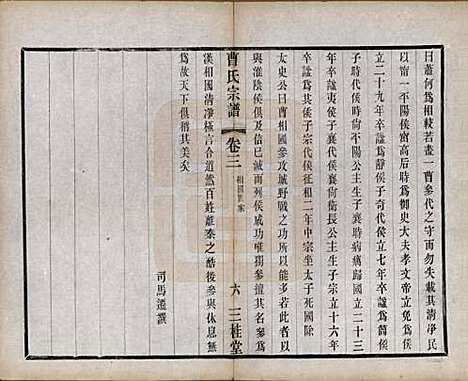 曰蕭何爲相較若畫一曹參代之守而勿失載其清淨民
以甯一平陽侯窋高后時爲御史大夫孝文帝立免爲侯
立二十九年卒謚爲靜侯子奇代侯立七年卒謚爲簡侯
子時代侯時尚平陽公主生子襄時病癘歸國立二十三
年卒謚夷侯子襄代侯襄尚衛長公主生子宗立十六年
卒謚爲共侯子宗代侯征和二年中宗坐太子死國除
太史公曰曹相國參攻城野戰之功所以能多若此者以
與淮陰侯俱及信已滅而列侯成功唯獨參擅其名參爲
曹氏宗譜
卷三
相國世家
六
三桂堂
漢相國清淨極言合道然百姓離秦之酷後參與休息無
爲故天下俱稱其美矣
司馬遷撰